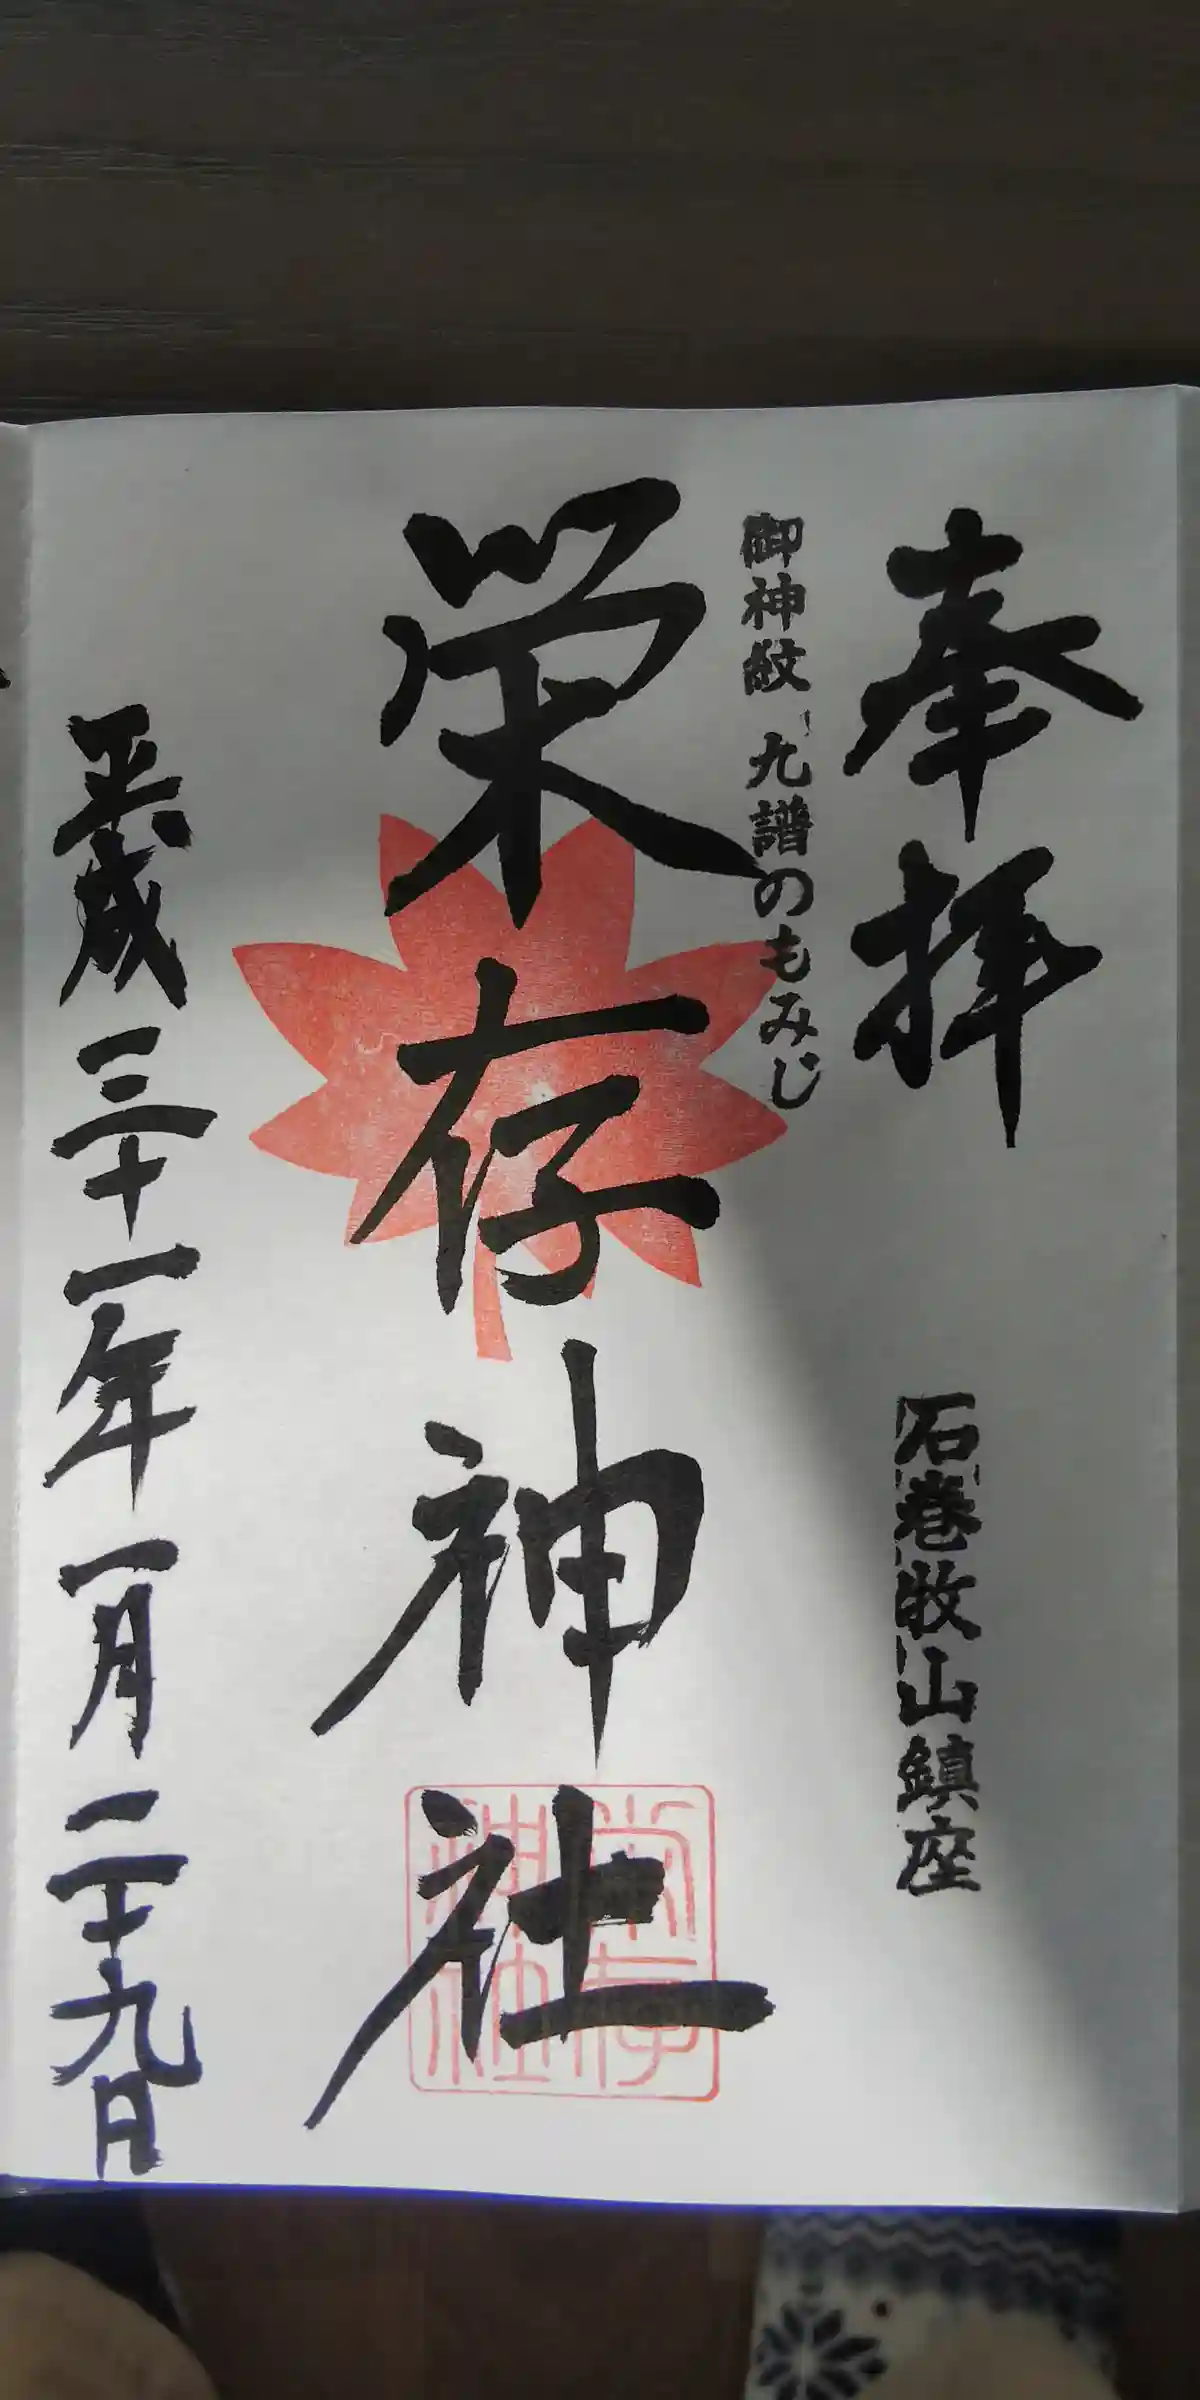 奉拝
石巻牧山鎮座
御神紋 九譜のもみじ
栄存神社
栄存神社
平成三十一年一月二十九日